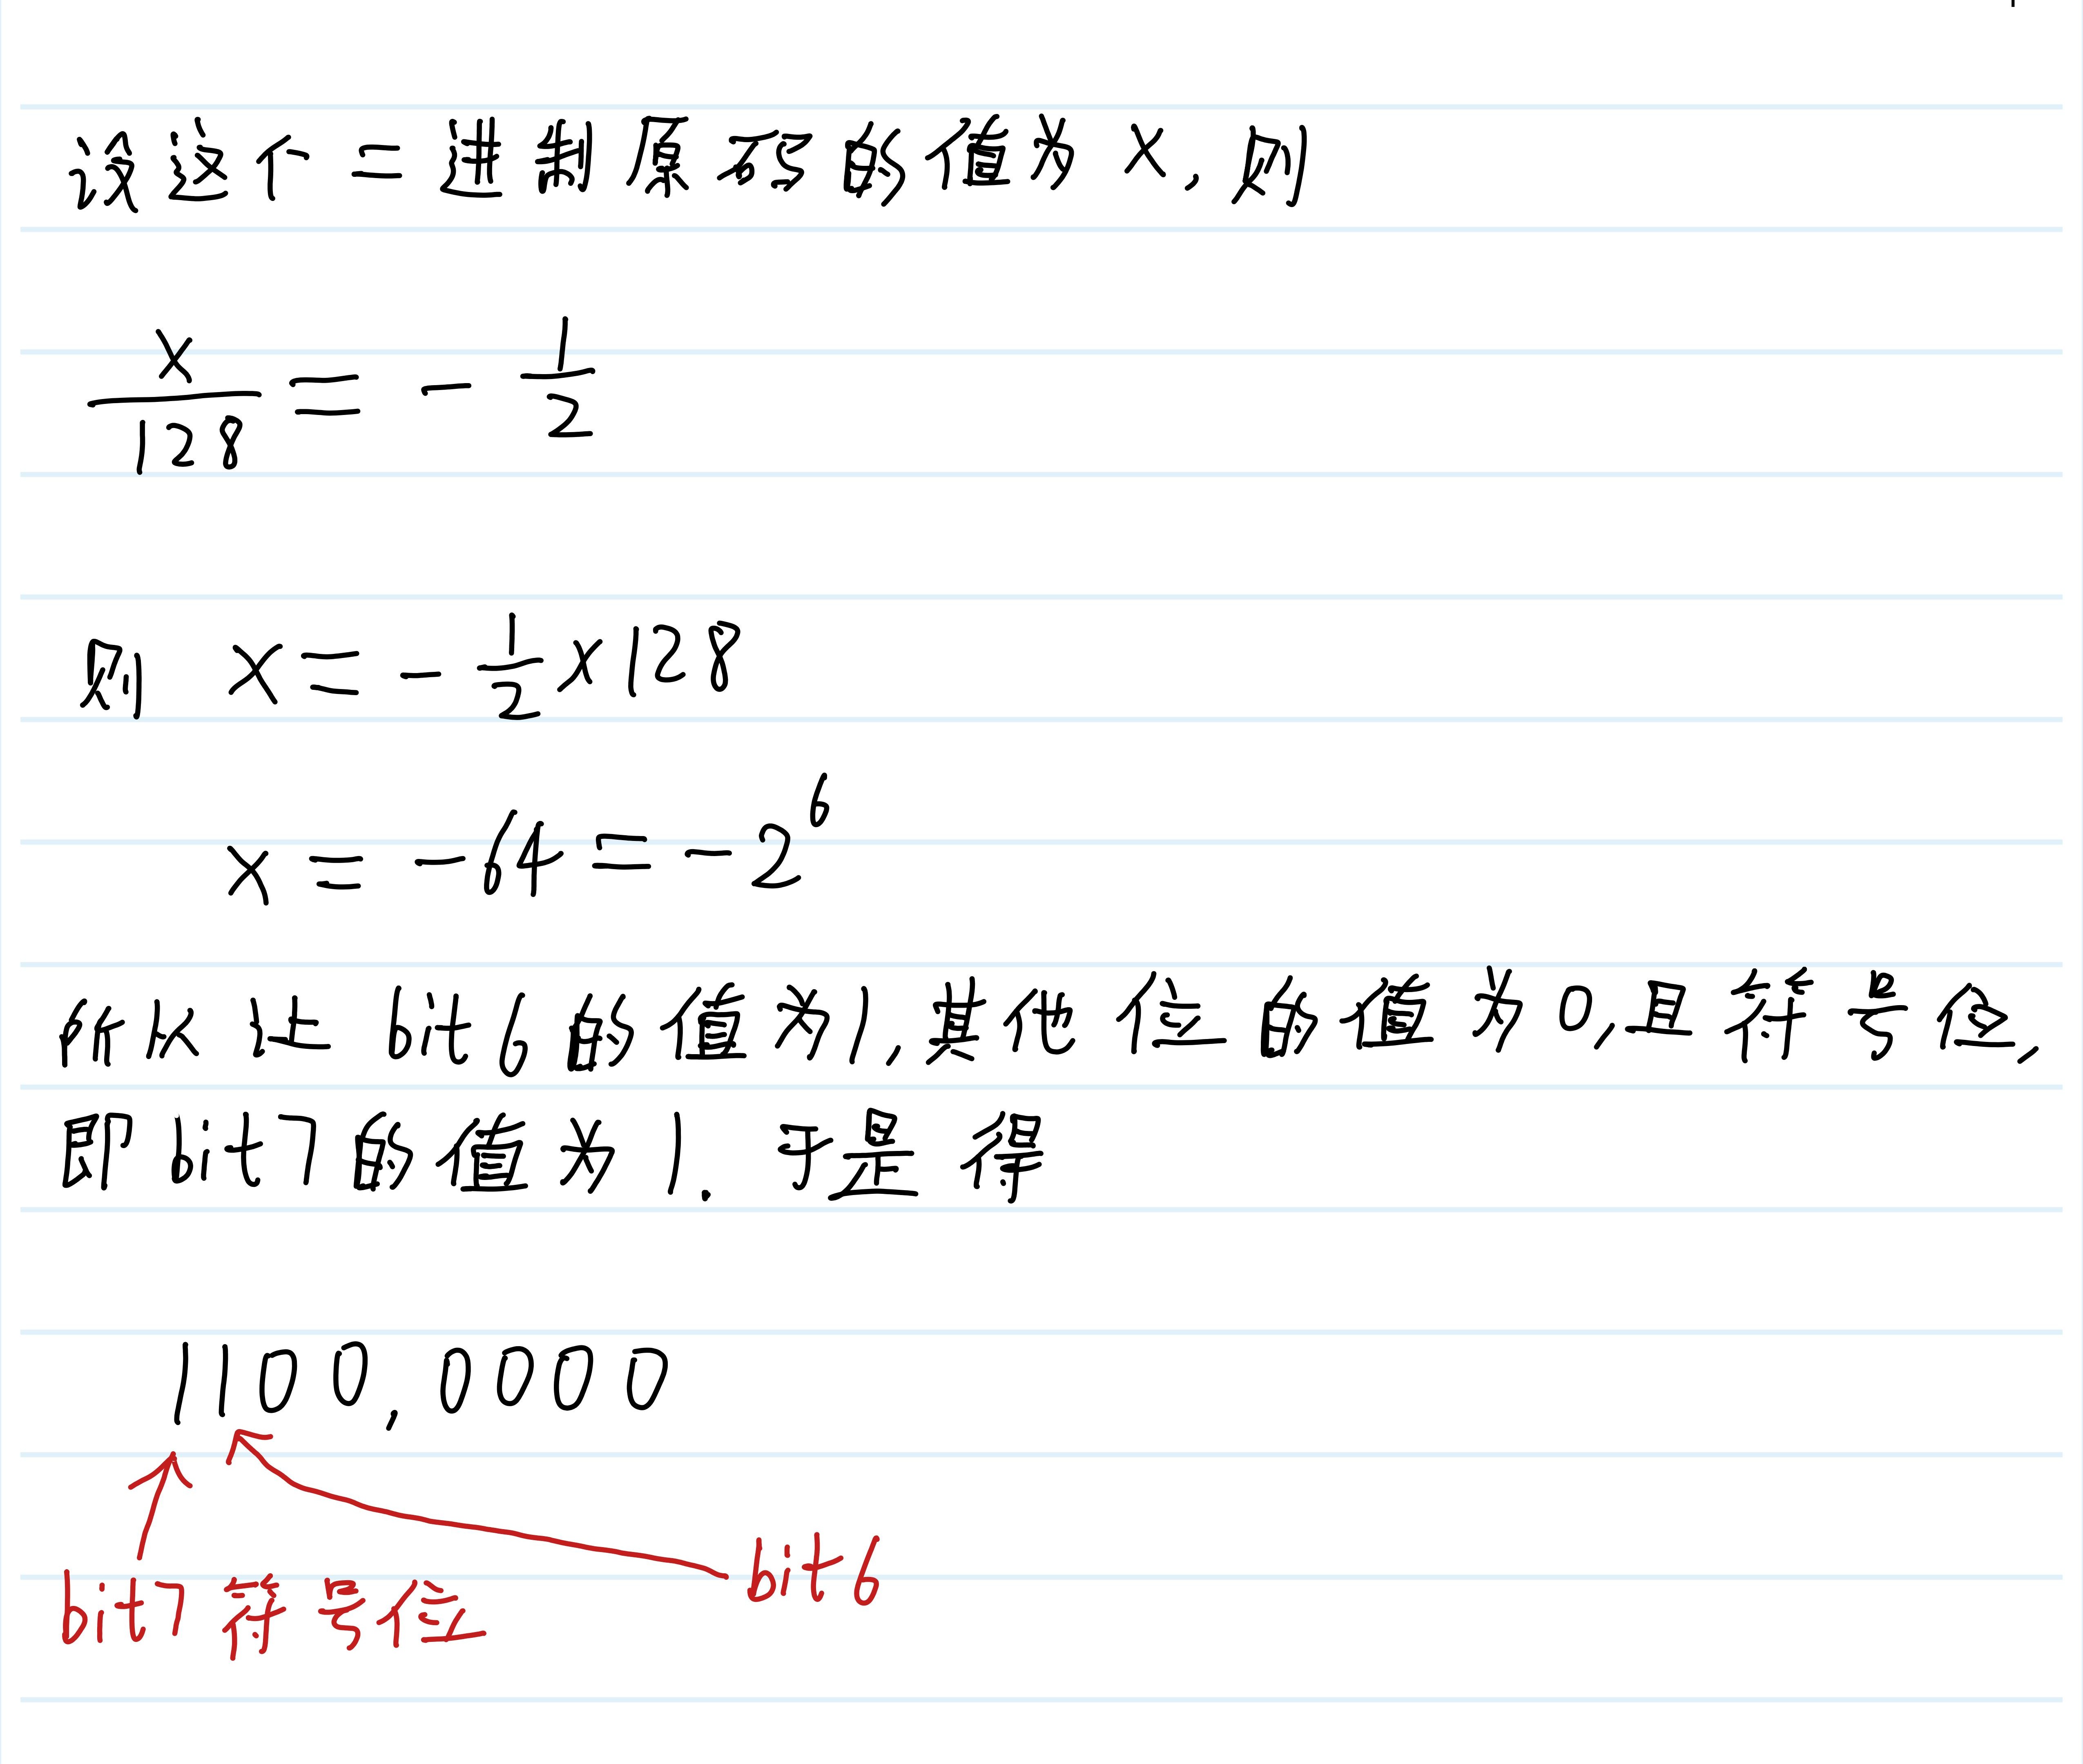 设这个二进制原本的值为x,则
x/128 = - 1/2
则 x = - 1/2 x 128
x = -64 = -2^6
所以让bit6的值为1,其他位的值为0,且符号位,
即bit7的值为1.于是得
1100,0000
bit6
bit7符号位